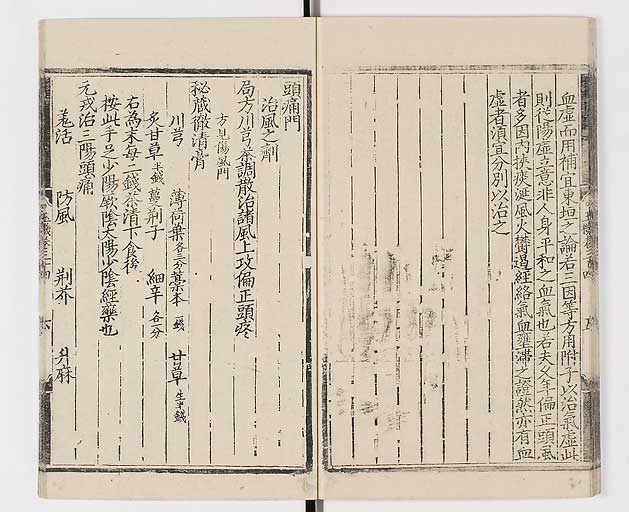 血虛而用補宜東垣之論若三因等方用附子以治氣虛此
則從陽虛立意非人身平和之血氣也若夫久年偏正頭風
者多因內挾痰涎風火鬱遏經絡氣血壅滯之證然亦有血
虛者須宜分別以治之
頭痛門
治風之劑
局方川芎茶調散治諸風上攻偏正頭疼
方見傷風門
秘藏徹清膏
川芎 薄荷葉各三分藁本一錢 甘草生半錢
炙甘草半錢 蔓荊子 細辛各一分
右為末每二錢茶清下食後
按此手足少陽厥陰太陽少陰經藥也
元戎治三陽頭痛
羌活 防風 荊芥 升麻